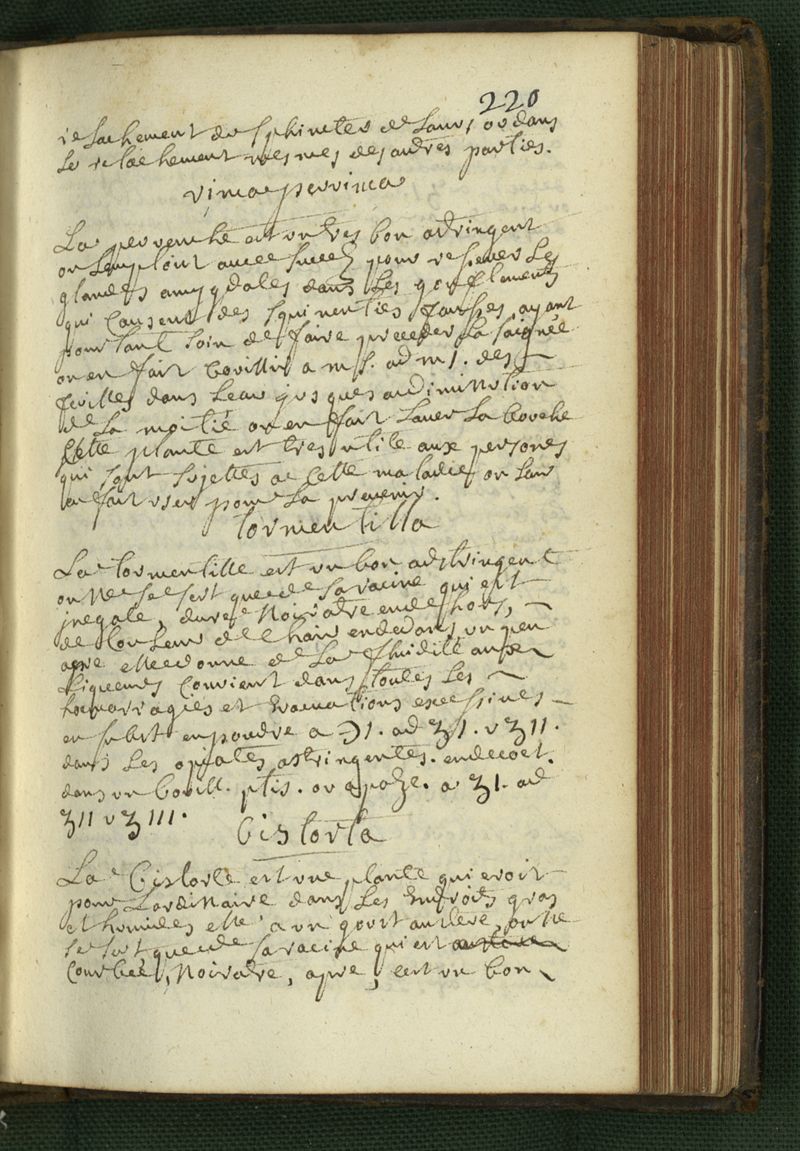 220
relachement du sphincter de l'anus ou dans
le relachement mesmes des autres parties.
vinca pervinca
La pervenche est un tres bon astringent
on l'emploit avec succez pour resserer les
glandes amygdales dans les gonflements
qui causent des squinenties fausses, ayant
pourtant soin de faire preceder la saignée
on en fait bouillir a m s. ad m 1. des
feuilles dans l'eau jusques a diminution
de la moitié on en fait laver la bouche
Cette plante est tres utile aux personnes
qui sont sujettes a cette maladie on leur
en fait user pour la prevenir.
tormentilla
La tormentille est un bon adstringent
on ne se sert que de sa racine qui est
inegale, dure, noiratre en dehors,
de couleur de chair en dedans, un peu
apre elle donne de la fluidité aux
liqueurs convient dans toutes les
hemorragies et evacuations excessives
en subst. en poudre a ℈1. ad ʒ1. v ʒ11.
dans les opiates astringentes. en decoct.
dans un bouill. ptis. ou apoz. a ʒ1. ad
ʒ11 v ʒ111.
bistorta
La bistorte est une plante qui croit
pour l'ordinaire dans les endroits gras
et humides elle a un gout austere, on ne
se sert que de sa racine qui est
courbée, noiratre, apre, c'est un bon